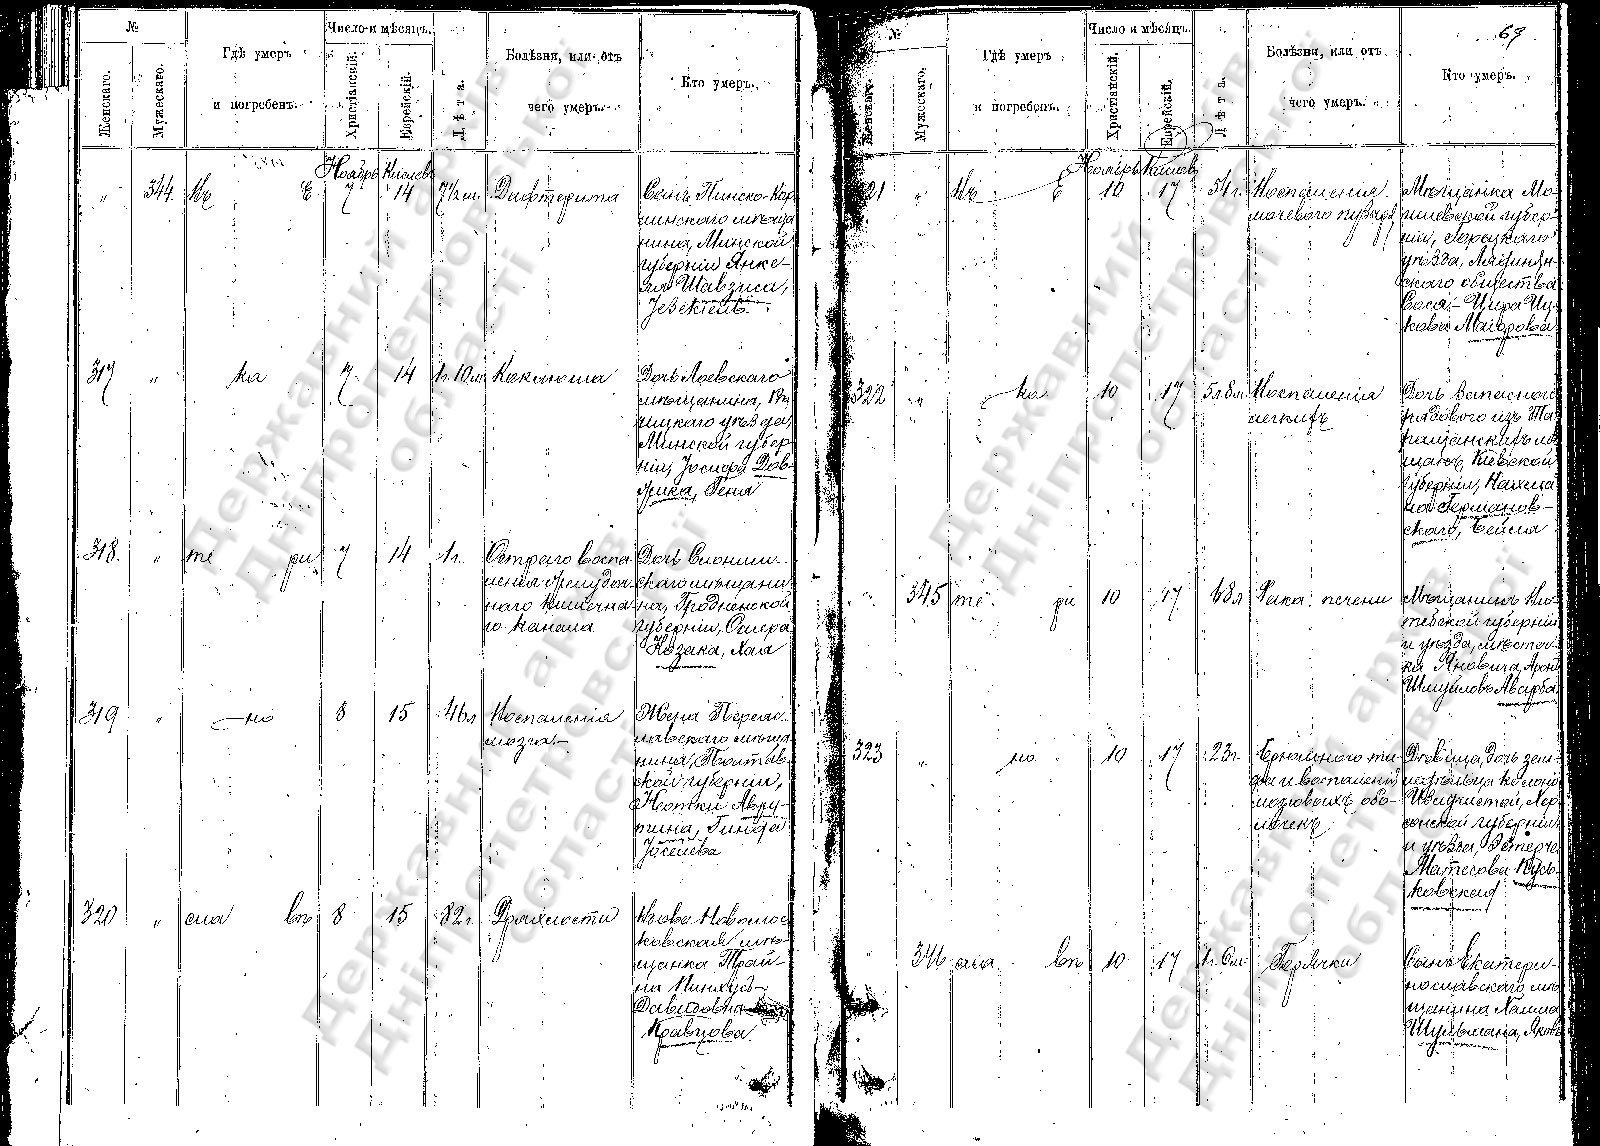 №
Число и мѣсяцъ.
Женскаго.
Мужескаго.
Гдѣ умеръ
и погребенъ.
Христіанскій.
Еврейскій.
Лѣта.
Болѣзни, или отъ
чего умеръ.
Кто умеръ.
Ноябрь Кислевъ
" 344 Въ Е 7 14 7½ м. Дифтерита
Сынъ Пинско-Кар
линскаго мѣща
нина, Минской
губерніи Янке-
ля Шавзиса,
Іезекіель.
317 " ка 7 14 1г. 10м. Коклюша
Дочь Лоевскаго
мѣщанина, Рѣ
чицкаго уѣзда,
Минской губер
ніи, Іосифа Дов-
Геня
318 " те ри 7 14 1г.
Остраго воспа
ленія желудоч
наго кишечна
го канала
Дочь Слоним
скаго мѣщани
на, Гродненской
губерніи, Ошера
Козака, Хая
319 " но 8 15 46л
Воспаленія
мозга
Жена Переяс
лавскаго мѣща
нина, Полтав
ской губерніи,
Нотки Авру-
тина, Гинда
Іоселева
320 " сла въ 8 15 82г. Дряхлости
Вдова Новомос
ковская мѣ
щанка Трай
на Пинхусъ-
Давидовна
Кравцова
69
№
Число и мѣсяцъ.
Женскаго.
Мужескаго.
Гдѣ умеръ
и погребенъ.
Христіанскій.
Еврейскій.
Лѣта.
Болѣзни, или отъ
чего умеръ.
Кто умеръ.
Ноябрь Кислевъ
321 " Въ Е 10 17 54г.
Воспаленія
мочевого пузыря
Мѣщанка Мо-
гилевской губер
ніи, Горецкаго
уѣзда, Лядинян-
скаго общества
Бася-Цира Иц-
кова Маіорова
322 " ка 10 17 5л 8м
Воспаленія
легкихъ
Дочь запаснаго
рядового изъ Та
ращанскихъ мѣ
щанъ, Кіевской
губерніи, Нахма
на Германов-
скаго, Бейла
" 345 те ри 10 17 68л Рака печени
Мѣщанинъ Ви-
тебской губерніи
и уѣзда, мѣстеч-
ка Яновича, Аронъ
Шмуйловъ Аварбах
323 " но 10 17 23г.
Брюшного ти
фа и воспаленія
мозговыхъ обо-
лочекъ
Дѣвица, дочь зем-
ледѣльца колоніи
Хер
сонской губерніи
и уѣзда, Эстеръ
Матесова Куль-
ковская
346 сла въ 10 17 1г. 6м Горячки
Сынъ Екатери-
нославскаго мѣ
щанина Хаима
Шульмана, Яковъ
Державний архів
Дніпропетровської
області